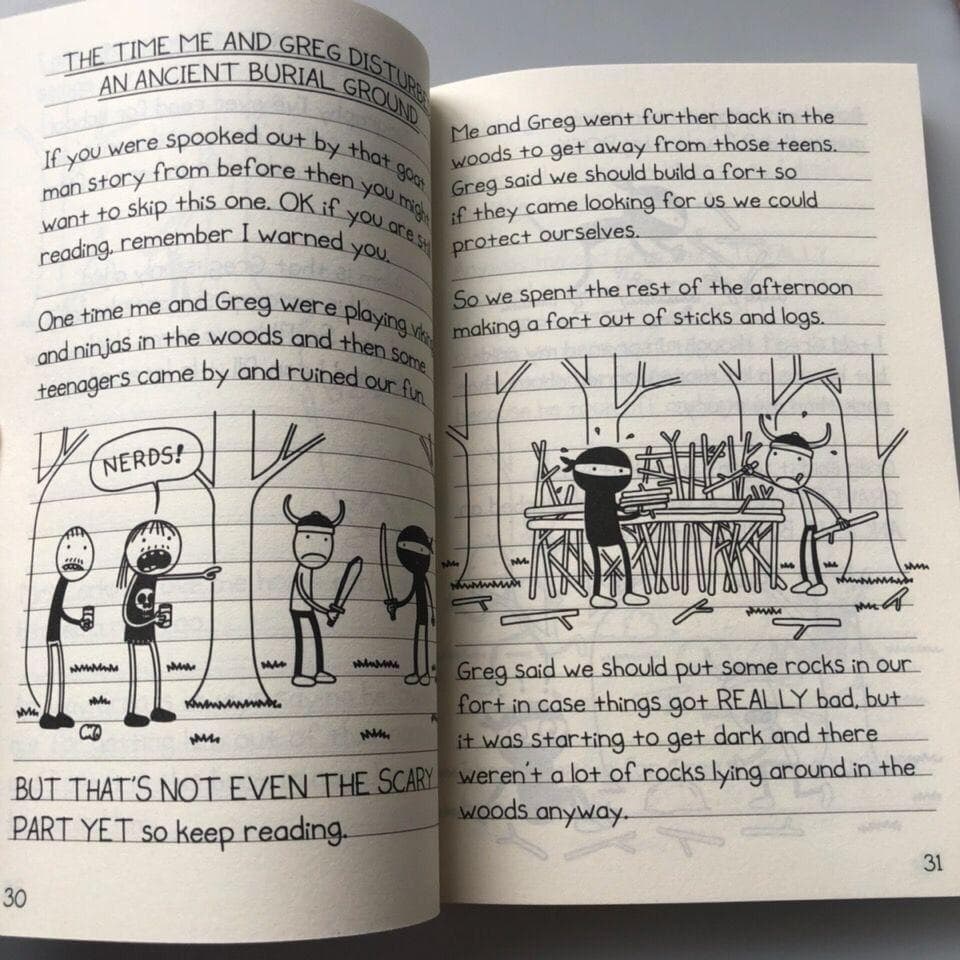 THE TIME ME AND GREG DISTURBE
AN ANCIENT BURIAL GROUND
If you were spooked out by that goat
man story from before then you might
want to skip this one. OK if you are still
reading, remember I warned you.
One time me and Greg were playing vikin
and ninjas in the woods and then some
teenagers came by and ruined our fun.
NERDS!
BUT THAT'S NOT EVEN THE SCARY
PART YET so keep reading.
30
Me and Greg went further back in the
woods to get away from those teens.
Greg said we should build a fort so
if they came looking for us we could
protect ourselves.
So we spent the rest of the afternoon
making a fort out of sticks and logs.
Greg said we should put some rocks in our
fort in case things got REALLY bad, but
it was starting to get dark and there
weren't a lot of rocks lying around in the
woods anyway.
31